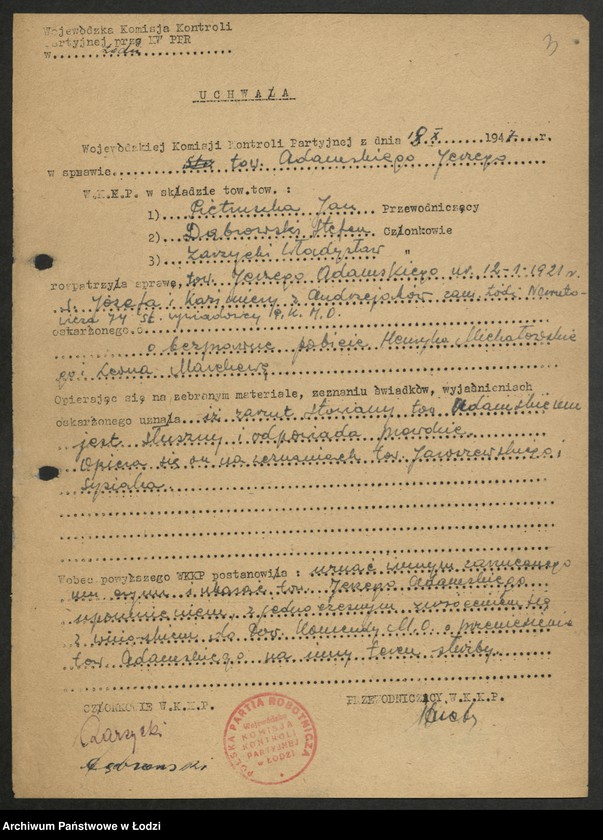 Wojewódzka Komisja Kontroli
Partyjnej przy KW PPR
w Łodzi
3
UCHWAŁA
Wojewódzkiej Komisji Kontroli Partyjnej z dnia 18 X 1947 r.
w sprawie tow. Adamskiego Jerzego
W.K.K.P. w składzie tow.tow. :
1) Pietruszka Jan Przewodniczący
2) Dąbrowski Stefan Członkowie
3) Zarzycki Władysław "
rozpatrzyła sprawę, tow. Jerzego Adamskiego ur. 12-1-1921 r.
s. Józefa i Kazimiery z Andrzejaków zam. Łódź Naruto-
wicza 74 st. wywiadowcy K. M.O.
oskarżonego o
o bezprawne pobicie Henryka Michałowskie
go i Leona
Opierając się na zebranym materiale, zeznaniu świadków, wyjaśnieniach
oskarżonego uznała iż zarzut stawiany tow. Adamskiemu
jest słuszny i odpowiada prawdzie.
Opiera się on na zeznaniach tow. Jaworzewskiego i
Sypiała.
Wobec powyższego WKKP postanowiła : uznać winnym zarzucanego
mu czynu i ukarać tow. Jerzego Adamskiego
upomnieniem, z jednoczesnym zwróceniem się
z wnioskiem do Pow. Komendy M.O. o przeniesienie
tow. Adamskiego na inny teren służby.
CZŁONKOWIE W.K.K.P.
PRZEWODNICZĄCY W.K.K.P.
Zarzycki
Dąbrowski
POLSKA PARTIA ROBOTNICZA
Wojewódzka
KOMISJA
KONTROLI
PARTYJNEJ
w ŁODZI
Archiwum Państwowe w Łodzi